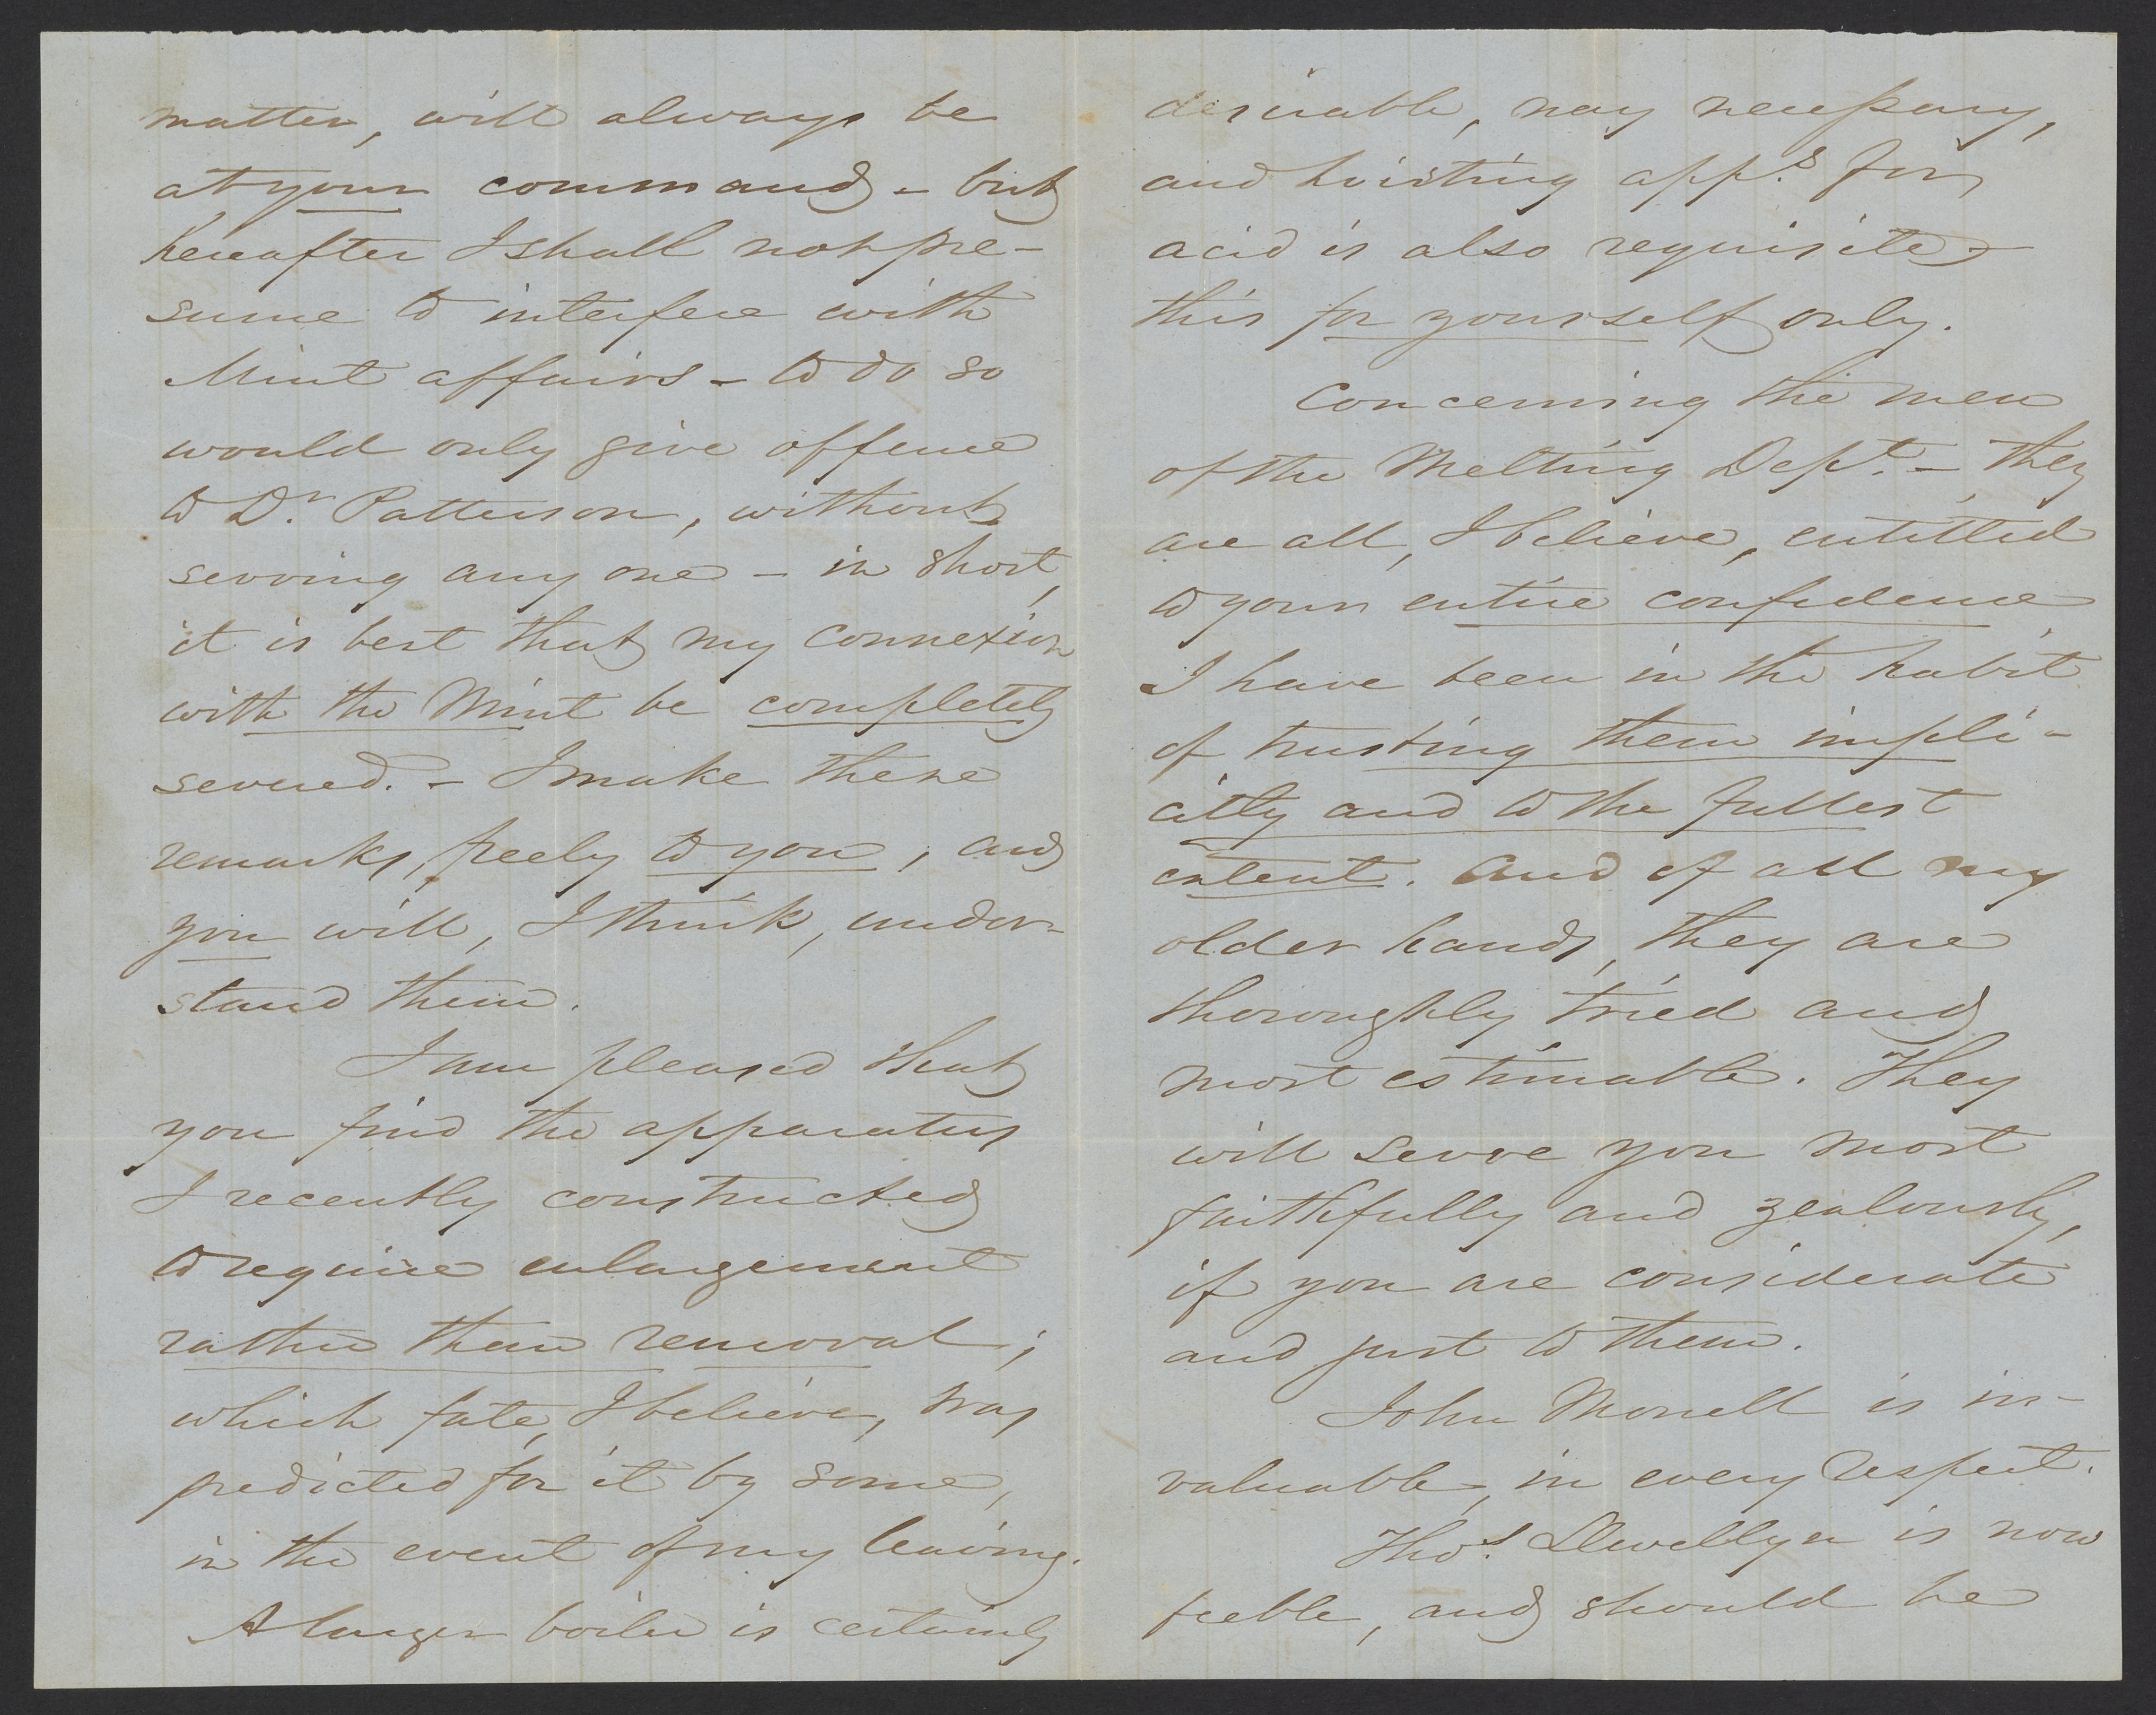 matter, will always be
at your command - but
hereafter I shall not pre-
sume to interfere with
Mint affairs - to do so
would only give offence
to Dr. Patterson, without
serving any one - in short,
it is best that my connexion
with the Mint be completely
severed. - I make these
remarks, freely to you, and
you will, I think, under-
stand them.
I am pleased that
you find the apparatus
I recently constructed
to require enlargement
rather than removal;
which fate, I believe, was
predicted for it by some,
in the event of my leaving.
A larger boiler is certainly
desirable, nay necessary,
and hoisting apps. for
acid is also requisite -
this for yourself only.
Concerning the men
of the Melting Dept. - they
are all, I believe, entitled
to your entire confidence
I have been in the habit
of trusting them impli-
citly and to the fullest
extent. And of all my
older hands, they are
thoroughly tried and
most estimable. They
will serve you most
faithfully and zealously,
if you are considerate
and just to them.
John Morrell is in-
valuable, in every respect.
Thos. Llwellyn is now
feeble, and should be